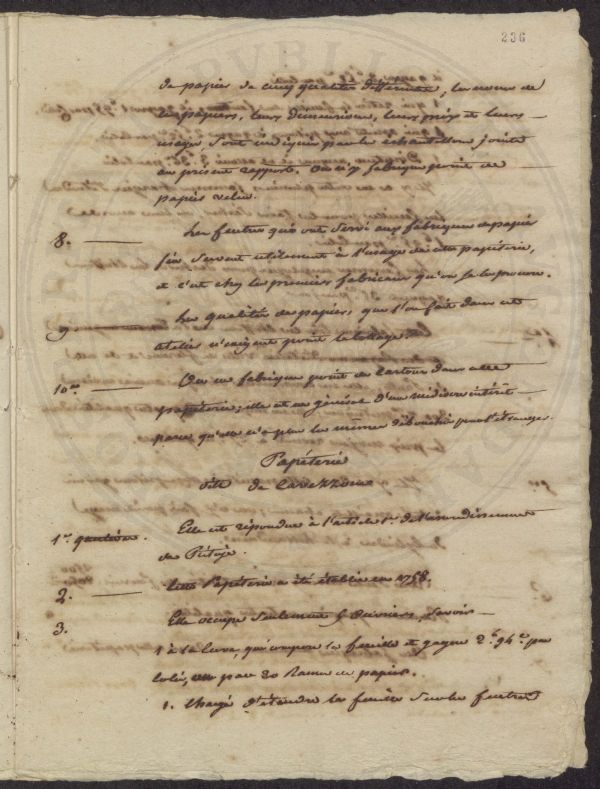 236
de papier de cinq qualités différentes, les noms de
ces papiers, leurs dimensions, leurs prix et leurs
usages sont indiqués par les échantillons joints
au présent rapport. On n'y fabrique point de
papier velin.
8. Les feutres qui ont servi aux fabriques de papier
fin servent utilement à l'usage de cette papéterie,
et c'est chez les premiers fabricans qu'on se les procure.
9 Les qualités des papiers que l'on fait dans cet
atelier n'exigent point le collage.
10. On ne fabrique point de cartons dans cette
papéterie; elle est en général d'un médiocre intérêt
parce qu'elle n'a plus les mêmes débouchés pour l'étranger.
Papéterie
dite de
1.re question. Elle est répondue à l'article 1.er de l'arrondissement
de
2. Cette Papéterie a été établie en 1758.
3. Elle occupe seulement 9 Ouvriers, Savoir
1 à la Cuve, qui compose la feuille et gagne 2.f 94.c par
20 Rames de papier.
1. Chargé d'étendre la feuille sur les feutres